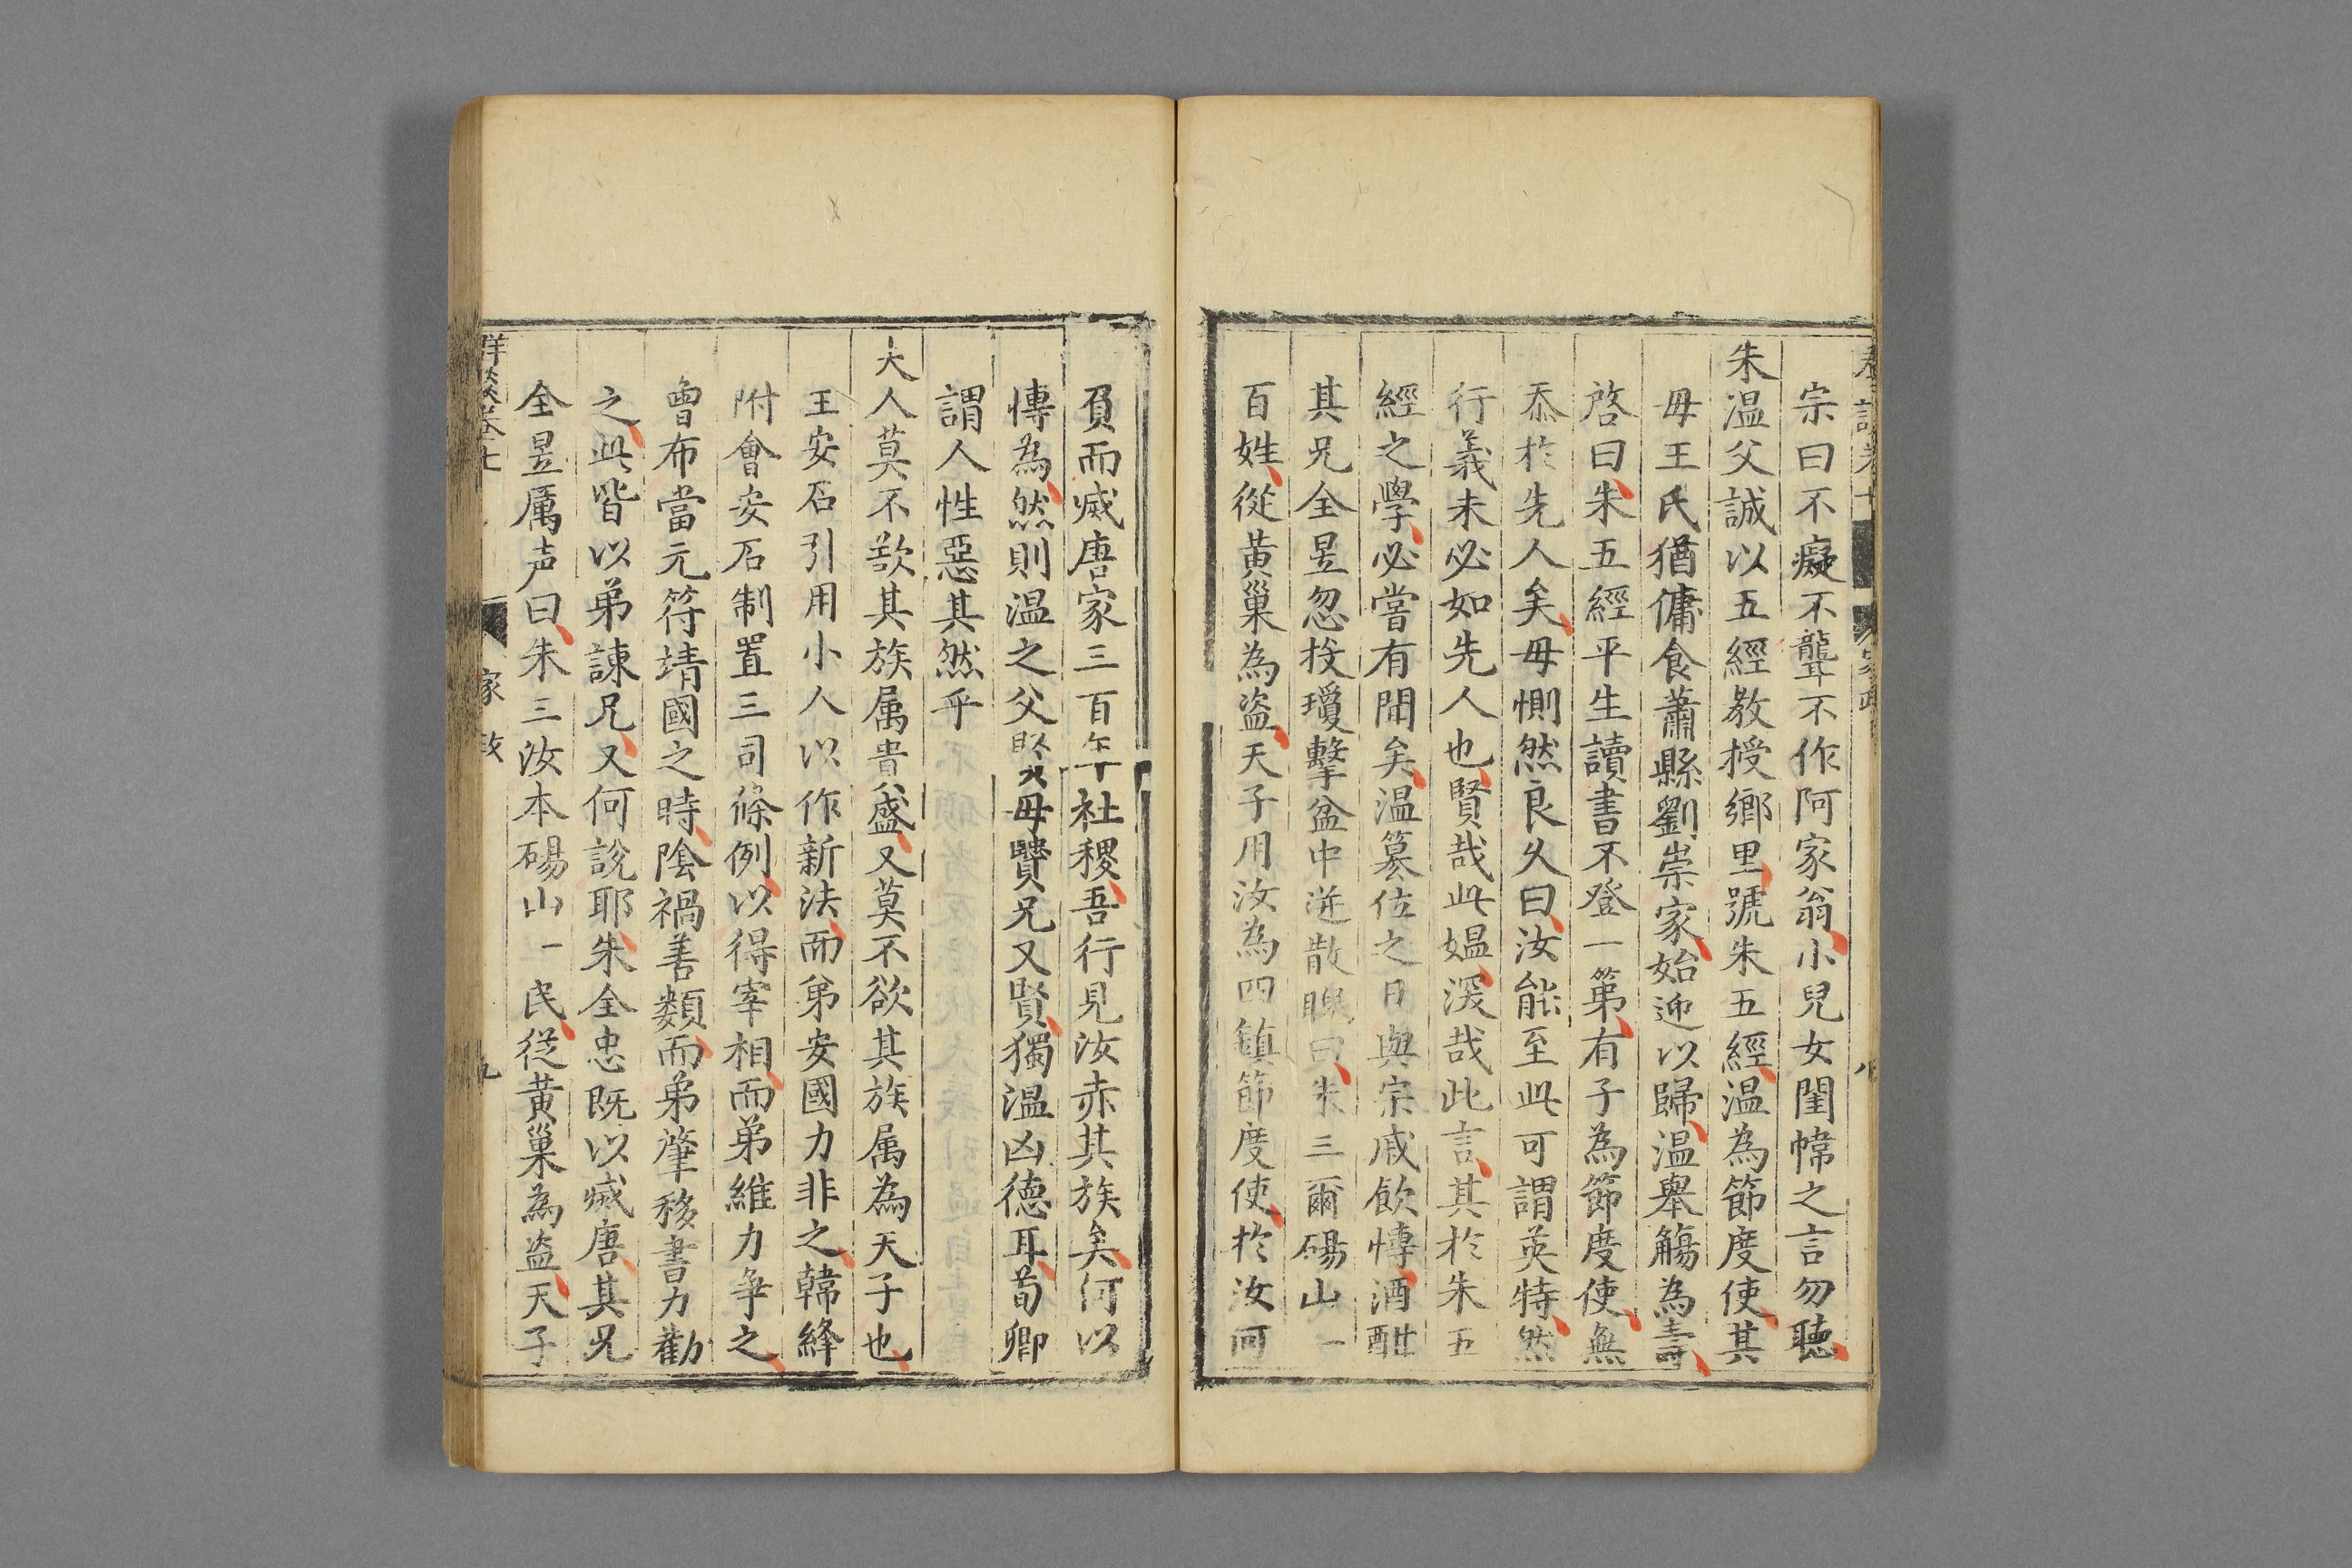 宗曰不癡不聾不作阿家翁小兒女閨幃之言勿聽
朱温父誠以五經教授鄉里號朱五經温為節度使其
母王氏猶傭食蕭縣劉崇家始迎以歸温舉觴為壽
啓曰朱五經平生讀書不登一第有子為節度使無
忝於先人矣母惻然良久曰汝能至此可謂英特然
行義未必如先人也賢哉此媪深哉此言其於朱五
經之學必嘗有聞矣温篡位之日與宗戚飲慱酒酣
其兄全昱忽投瓊擊盆中迸散睨曰朱三爾碭山一
百姓從黄巢為盗天子用汝為四鎮節度使於汝何
負而滅唐家三百年社稷吾行見汝赤其族矣何以
慱為然則温之父賢母賢兄又賢獨温凶德耳荀卿
謂人性惡其然乎
大人莫不欲其族属貴盛又莫不欲其族属為天子也
王安石引用小人以作新法而弟安國力非之韓絳
附會安石制置三司條例以得宰相而弟維力争之
曾布當元符靖國之時隂禍善類而弟肇移書力勸
之此皆以弟諫兄又何說耶朱全忠既以滅唐其兄
全昱厲声曰朱三汝本碭山一民從黄巢為盗天子
家政
九